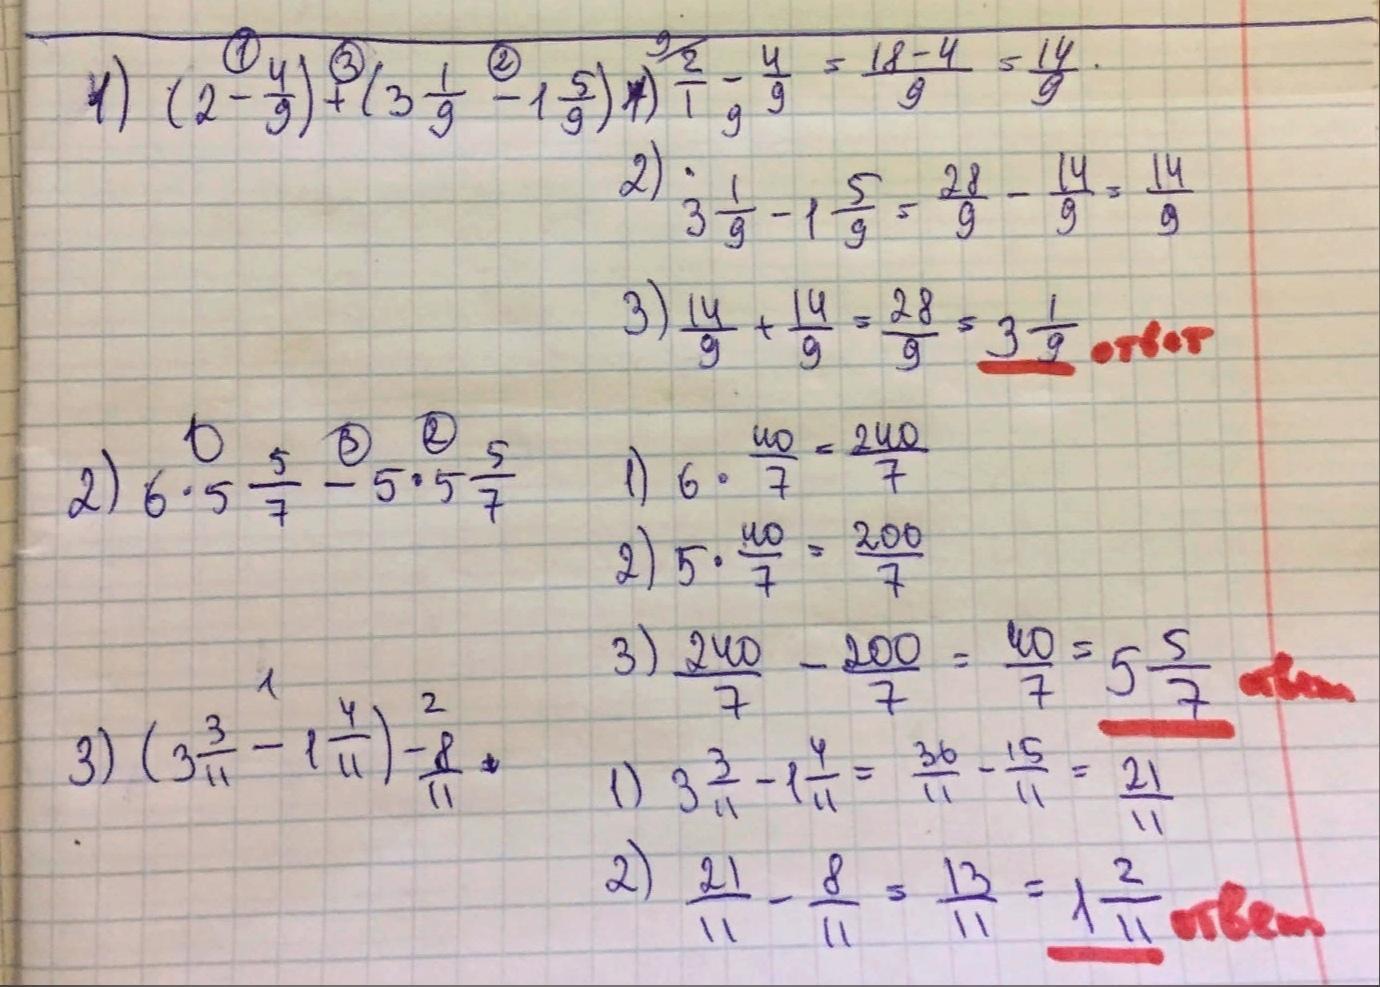 1) (2 - 4/9) + (3 1/9 - 1 5/9) 1) 2/1 - 4/9 = 18-4/9 = 14/9.
① ③ ② 9 9
2) 3 1/9 - 1 5/9 = 28/9 - 14/9 = 14/9
3) 14/9 + 14/9 = 28/9 = 3 1/9 ответ
① ③ ②
2) 6 · 5 5/7 - 5 · 5 5/7 1) 6 · 40/7 = 240/7
2) 5 · 40/7 = 200/7
3) 240/7 - 200/7 = 40/7 = 5 5/7 ответ
1 2
3) (3 3/11 - 1 4/11) - 8/11 1) 3 3/11 - 1 4/11 = 36/11 - 15/11 = 21/11
2) 21/11 - 8/11 = 13/11 = 1 2/11 ответ